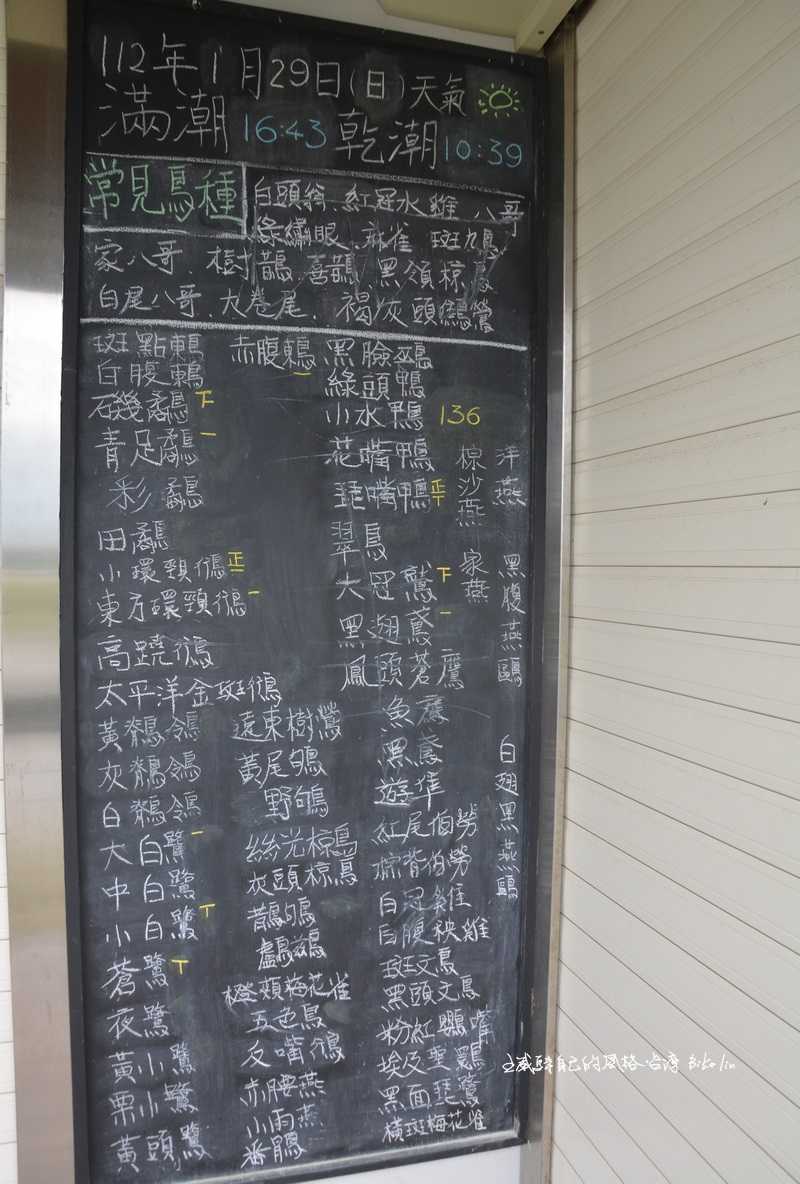 112年1月29日(日)天氣
滿潮 16:43 乾潮 10:39
常見鳥種
白頭翁.紅冠水雞.八哥
綠繡眼.麻雀 斑鳩
家八哥.樹鵲.喜鵲.黑領椋鳥
白尾八哥.大卷尾.褐灰頭鷦鶯
斑點鶇
白腹鶇
磯鷸 下
青足鷸 一
彩鷸
田鷸
小環頸鴴 正
東方環頸鴴 一
高蹺鴴
太平洋金斑鴴
黃鶺鴒
灰鶺鴒
白鶺鴒
大白鷺 一
中白鷺
小白鷺 T
蒼鷺 T
夜鷺
黃小鷺
栗小鷺
黃頭鷺
赤腹鶇 一
遠東樹鶯
黃尾鴝
野鴝
絲光椋鳥
灰頭椋鳥
鵲鴝
鸕鶿
橙頰梅花雀
五色鳥
反嘴鴴
赤腰燕
小雨燕
番鵑
黑臉鵐
綠頭鴨
小水鴨 136
花嘴鴨
琵嘴鴨 正
翠鳥
大冠鷲 下
黑翅鳶 一
鳳頭蒼鷹
魚鷹
黑鳶
遊隼
紅尾伯勞
棕背伯勞
白冠雞
白腹秧雞
斑文鳥
黑頭文鳥
粉紅鸚嘴
埃及聖䴉
黑面琵鷺
橫斑梅花雀
棕沙燕
家燕
洋燕
黑腹燕鷗
白翅黑燕鷗